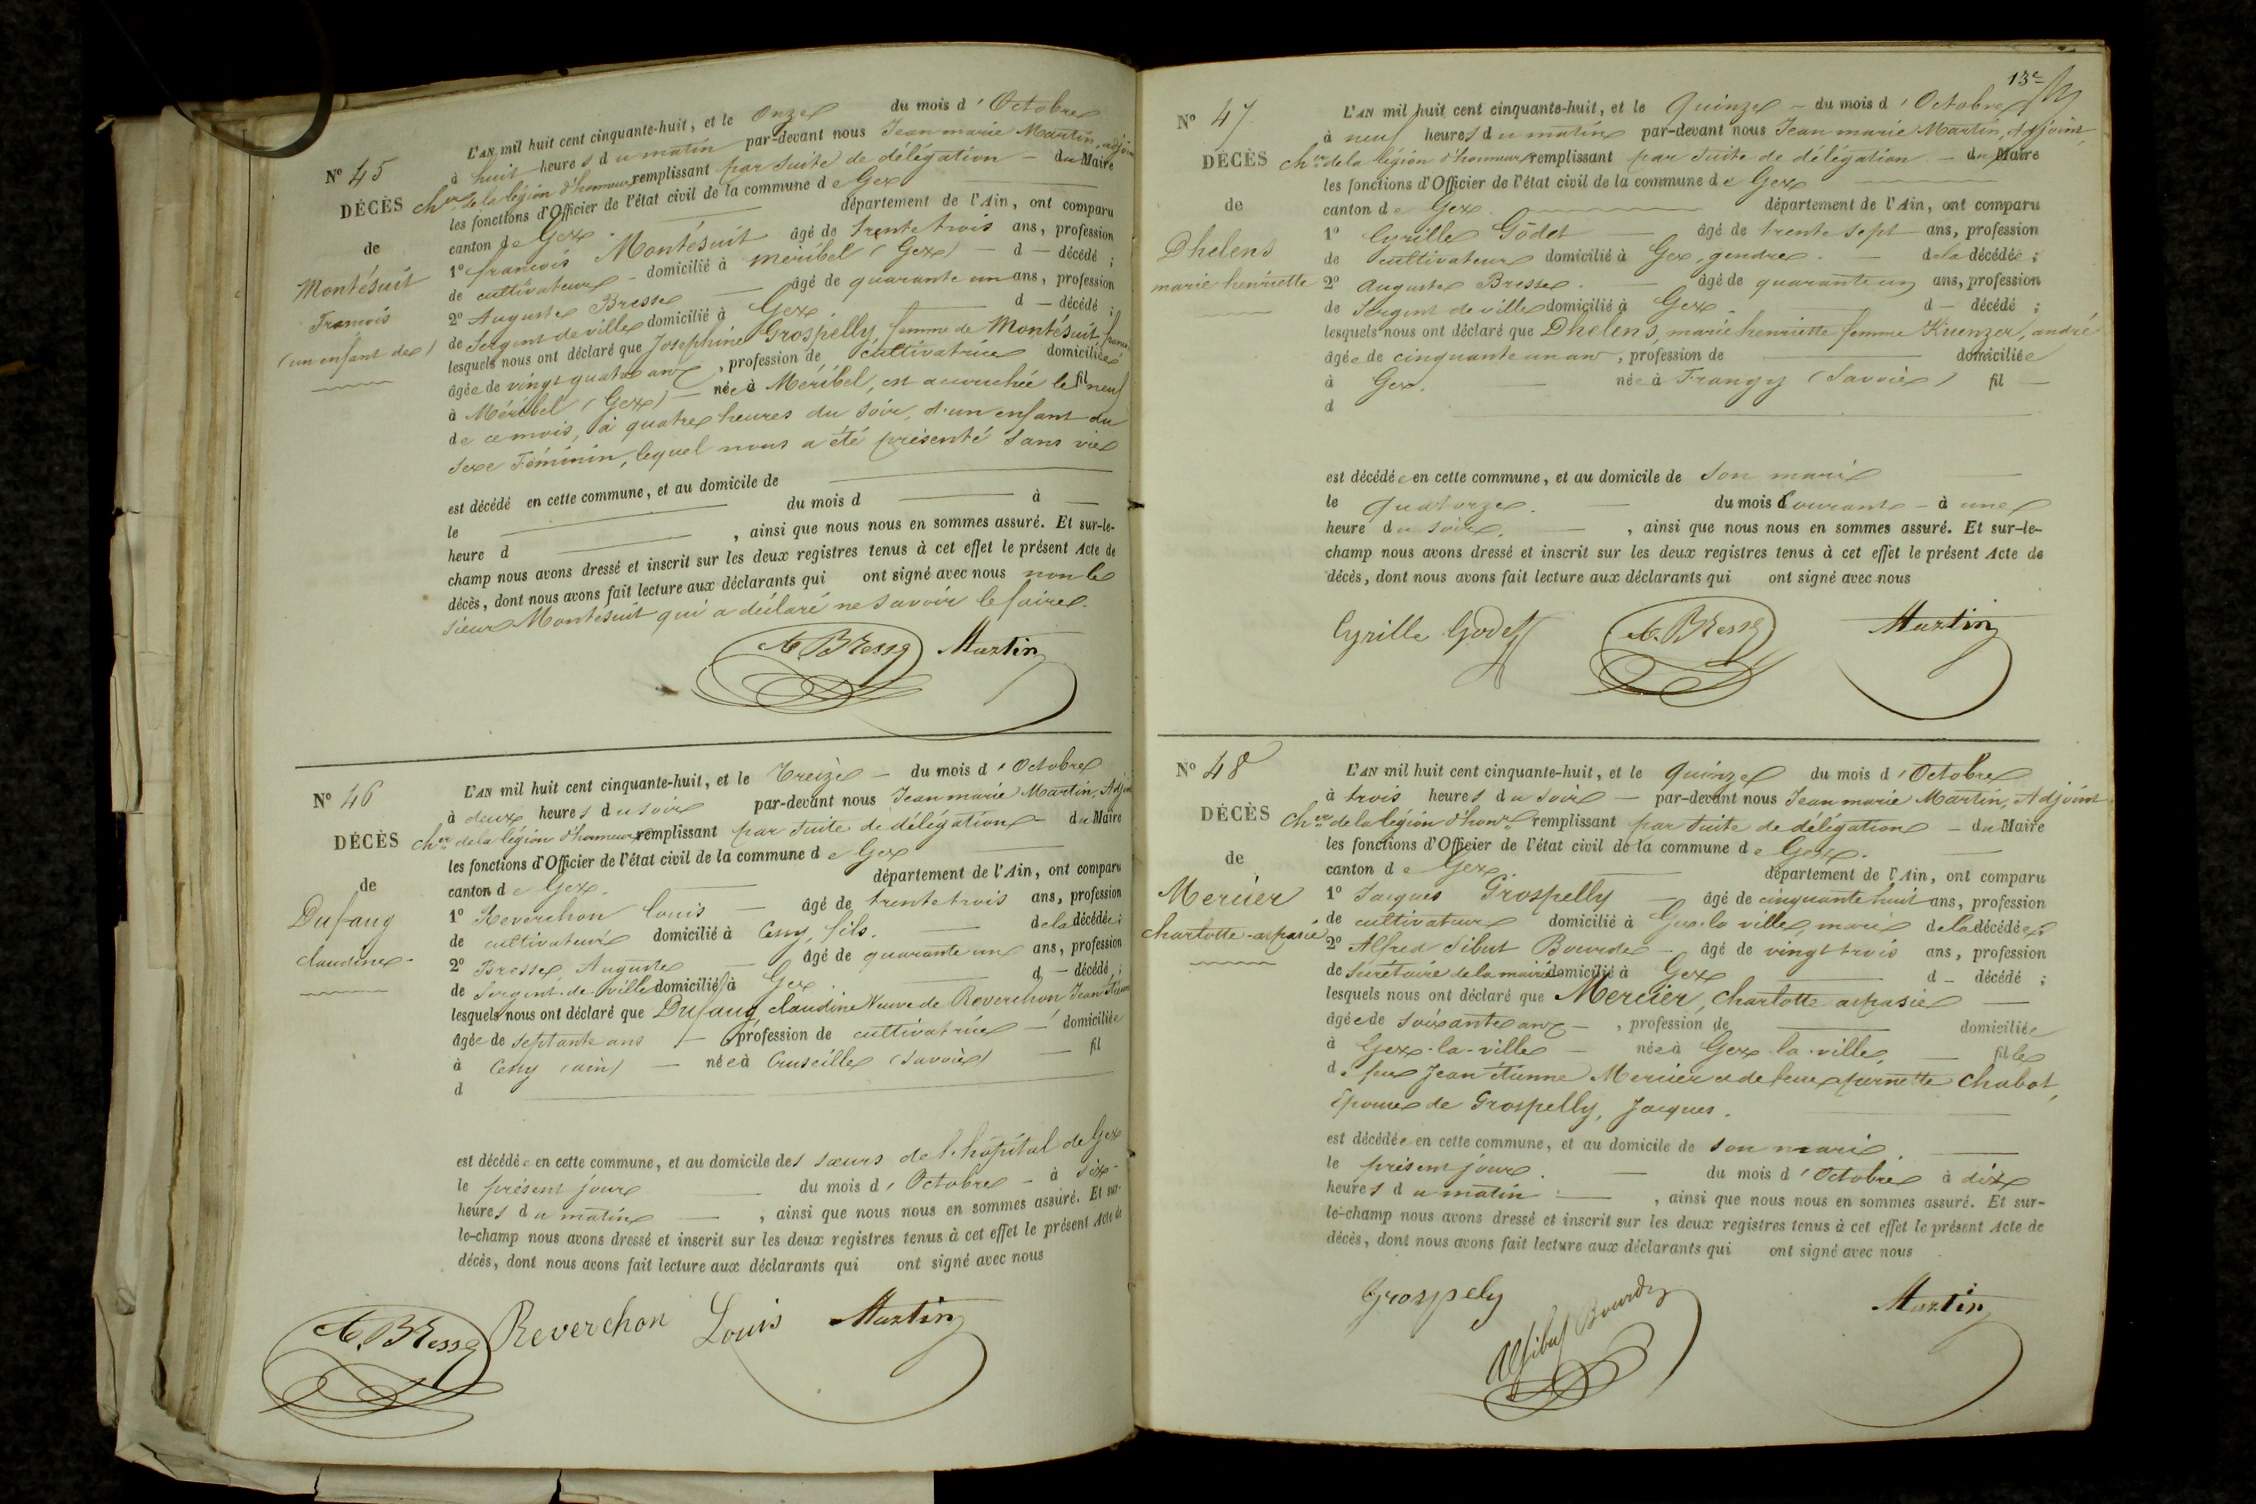 N° 45
DÉCÈS
de
Montésuit
François
(un enfant de)
L'AN mil huit cent cinquante-huit, et le Onze du mois d'Octobre
à huit heures du matin par-devant nous Jean marie Martin, adjoint
Cher de la légion d'honneur remplissant par suite de délégation - du Maire
les fonctions d'Officier de l'état civil de la commune de Gex
canton de Gex. département de l'Ain, ont comparu
1° francois Montésuit âgé de trente trois ans, profession
de cultivateur - domicilié à Méribel (Gex) - d - décédé ;
2° Auguste Bresse - âgé de quarante un ans, profession
de Sergent de ville domicilié à Gex d - décédé ;
lesquels nous ont déclaré que Joséphine Grospelly, femme de Montésuit,
âgée de vingt quatre ans , profession de cultivatrice domiciliée
à Méribel (Gex) - née à Méribel, est accouchée le fil neuf
de ce mois, à quatre heures du soir, d'un enfant du
sexe Féminin, lequel nous a été présenté sans vie
est décédé en cette commune, et au domicile de
le du mois d à
heure d , ainsi que nous nous en sommes assuré. Et sur-le-
champ nous avons dressé et inscrit sur les deux registres tenus à cet effet le présent Acte de
décès, dont nous avons fait lecture aux déclarants qui ont signé avec nous non le
sieur Montésuit qui a déclaré ne savoir le faire.
A. BResse Martin
N° 46
DÉCÈS
de
Dufaug
claudine.
L'AN mil huit cent cinquante-huit, et le Treize - du mois d'Octobre
à deux heures du soir par-devant nous Jean marie Martin, Adjoint
Cher de la légion d'honneur remplissant par suite de délégation - du Maire
les fonctions d'Officier de l'état civil de la commune de Gex
canton de Gex. département de l'Ain, ont comparu
1° Reverchon Louis - âgé de trente trois ans, profession
de cultivateur domicilié à Cessy, fils. - de la décédée ;
2° Bresse, Auguste - âgé de quarante un ans, profession
de Sergent-de-ville domicilié à Gex. d - décédé ;
lesquels nous ont déclaré que Dufaug claudine Veuve de Reverchon Jean
âgée de septante ans - profession de cultivatrice - domiciliée
à Cessy (ain) - née à Cruseille (Savoie) - fil
d
est décédée en cette commune, et au domicile des sœurs de l'hôpital de Gex
le présent jour du mois d'Octobre - à six -
heures du matin - , ainsi que nous nous en sommes assuré. Et sur-
le-champ nous avons dressé et inscrit sur les deux registres tenus à cet effet le présent Acte de
décès, dont nous avons fait lecture aux déclarants qui ont signé avec nous
A. BResse Reverchon Louis Martin
13e
N° 47
DÉCÈS
de
Dhelens
marie henriette
L'AN mil huit cent cinquante-huit, et le Quinze - du mois d'Octobre
à neuf heures du matin par-devant nous Jean marie Martin, Adjoint
Cher de la légion d'honneur remplissant par suite de délégation - du Maire
les fonctions d'Officier de l'état civil de la commune de Gex
canton de Gex. département de l'Ain, ont comparu
1° Cyrille Godet - âgé de trente sept ans, profession
de cultivateur domicilié à Gex, gendre. - de la décédée ;
2° auguste Bresse. - âgé de quarante un ans, profession
de Sergent de ville domicilié à Gex - d - décédé ;
lesquels nous ont déclaré que Dhelens, marie henriette femme Kuenzer, andré
âgée de cinquante un ans , profession de domiciliée
à Gex. - née à Frangy (Savoie) fil -
d
est décédée en cette commune, et au domicile de son mari
le quatorze. - du mois Courant - à une
heure du soir. - , ainsi que nous nous en sommes assuré. Et sur-le-
champ nous avons dressé et inscrit sur les deux registres tenus à cet effet le présent Acte de
décès, dont nous avons fait lecture aux déclarants qui ont signé avec nous
Cyrille Godet A. BResse Martin
N° 48
DÉCÈS
de
Mercier
charlotte-aspasie
L'AN mil huit cent cinquante-huit, et le Quinze du mois d'Octobre
à trois heures du soir - par-devant nous Jean marie Martin, Adjoint
Cher de la légion d'honr remplissant par suite de délégation - du Maire
les fonctions d'Officier de l'état civil de la commune de Gex.
canton de Gex. département de l'Ain, ont comparu
1° Jacques Grospelly - âgé de cinquante huit ans, profession
de cultivateur domicilié à Gex-la ville, mari de la décédée ;
2° Alfred Sibut Bourde - âgé de vingt trois ans, profession
de Secrétaire de la mairie domicilié à Gex d - décédé ;
lesquels nous ont déclaré que Mercier, charlotte aspasie -
âgée de soixante ans - , profession de domiciliée
à Gex-la-ville - née à Gex-la-ville, - fille
de feu Jean étienne Mercier et de feue pernette Chabot,
Epouse de Grospelly, Jacques.
est décédée en cette commune, et au domicile de son mari
le présent jour. - du mois d'Octobre à dix
heures du matin - , ainsi que nous nous en sommes assuré. Et sur-
le-champ nous avons dressé et inscrit sur les deux registres tenus à cet effet le présent Acte de
décès, dont nous avons fait lecture aux déclarants qui ont signé avec nous
Grospely Martin
A Sibut Bourde